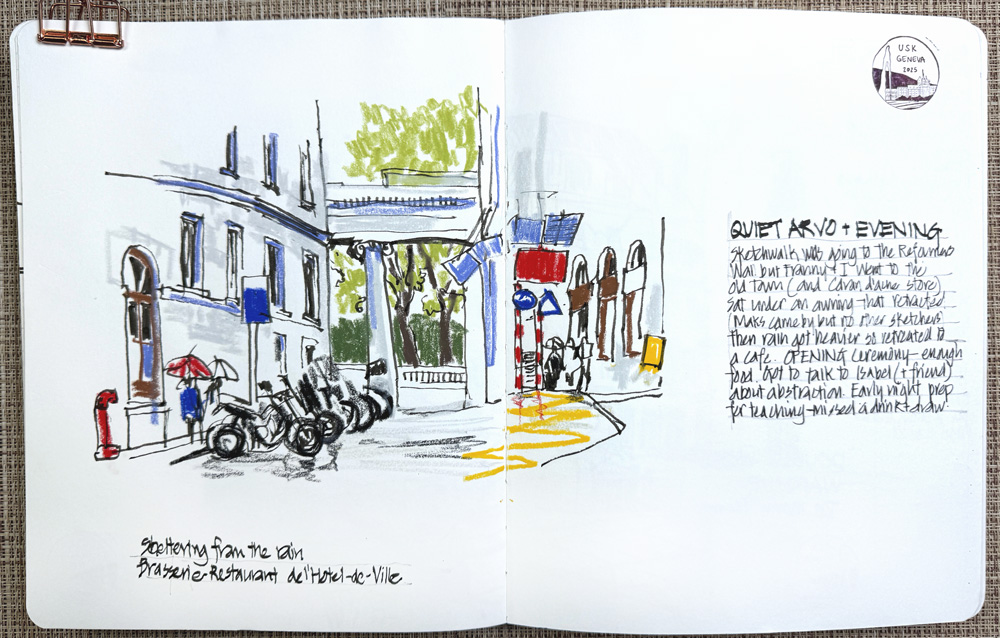 Sheltering from the rain
Brasserie-Restaurant de l'Hotel-de-Ville
U.S.K
GENEVA
2025
QUIET ARVO + EVENING
Sketchwalk was going to the Reformers
Wall but Franny + I went to the
old town (and Caran d'ache store)
Sat under an awning that retracted
(Maks came by but no other sketchers)
then rain got heavier so retreated to
a cafe. OPENING Ceremony - enough
food. Got to talk to Isabel (+ friend)
about abstraction. Early night, prep
for teaching - missed a drink + draw